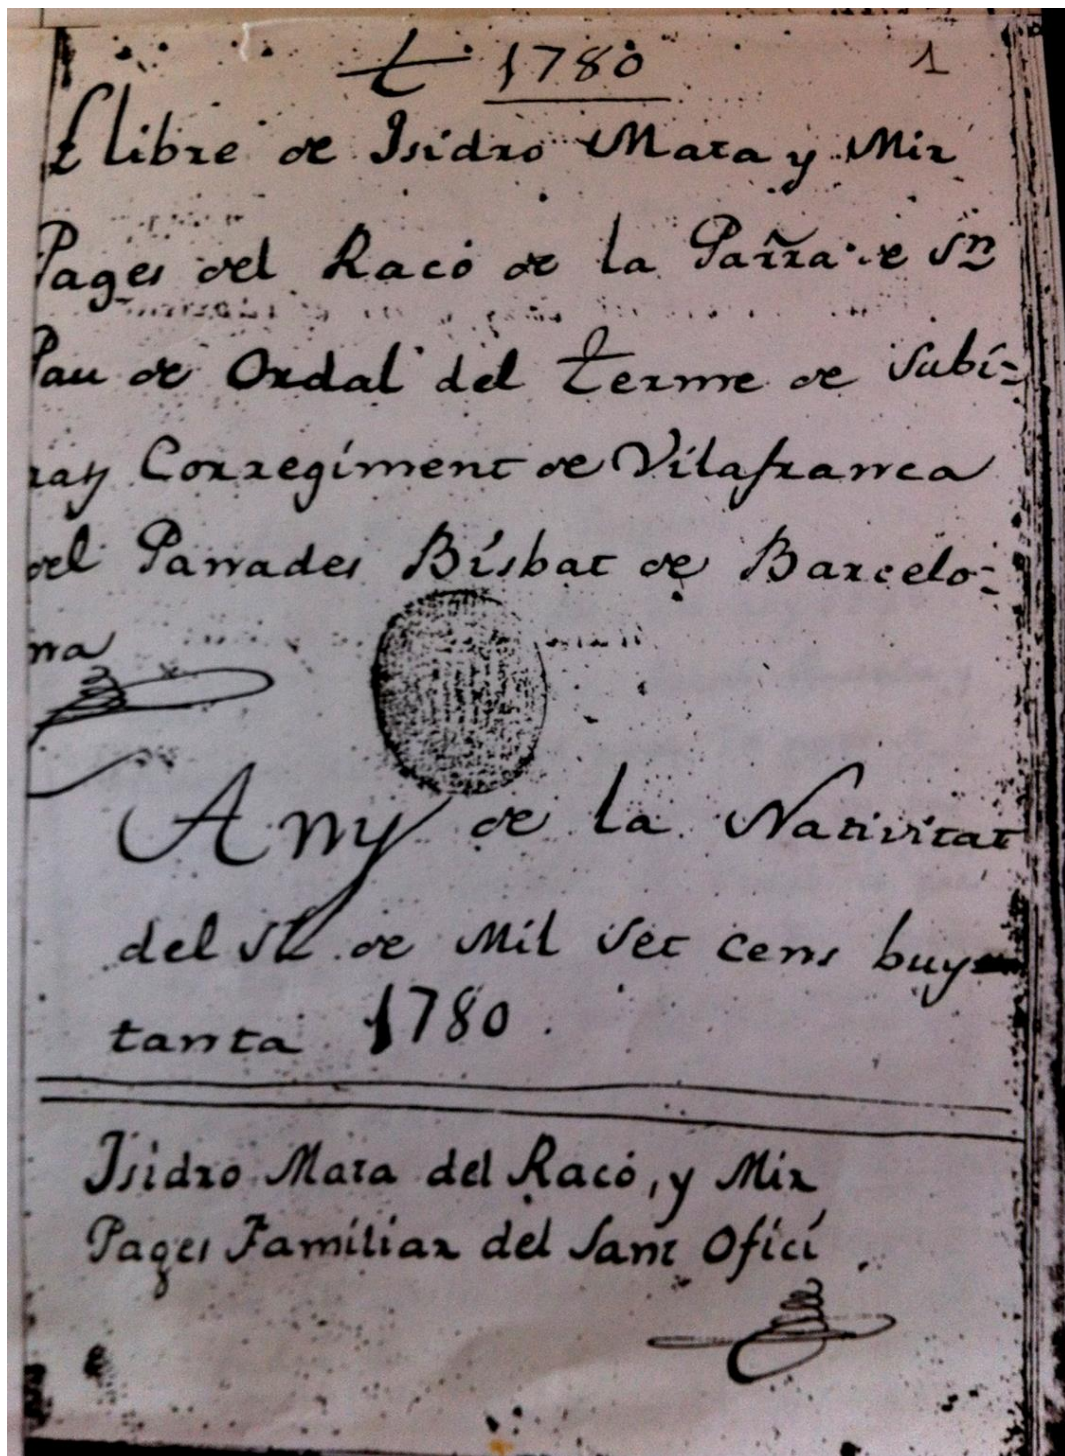 t 1780 1
Llibre de Isidro Mata y Mir
Pages del Racó de la Parra de Sn
Pau de Ordal del terme de Subi=
rats Corregiment de Vilafranca
del Panades Bisbat de Barcelo=
na
Any de la Nativitat
del Sr. de Mil Set Cens buy
tanta 1780.
Isidro Mata del Racó, y Mir
Pages Familiar del Sant Ofici.